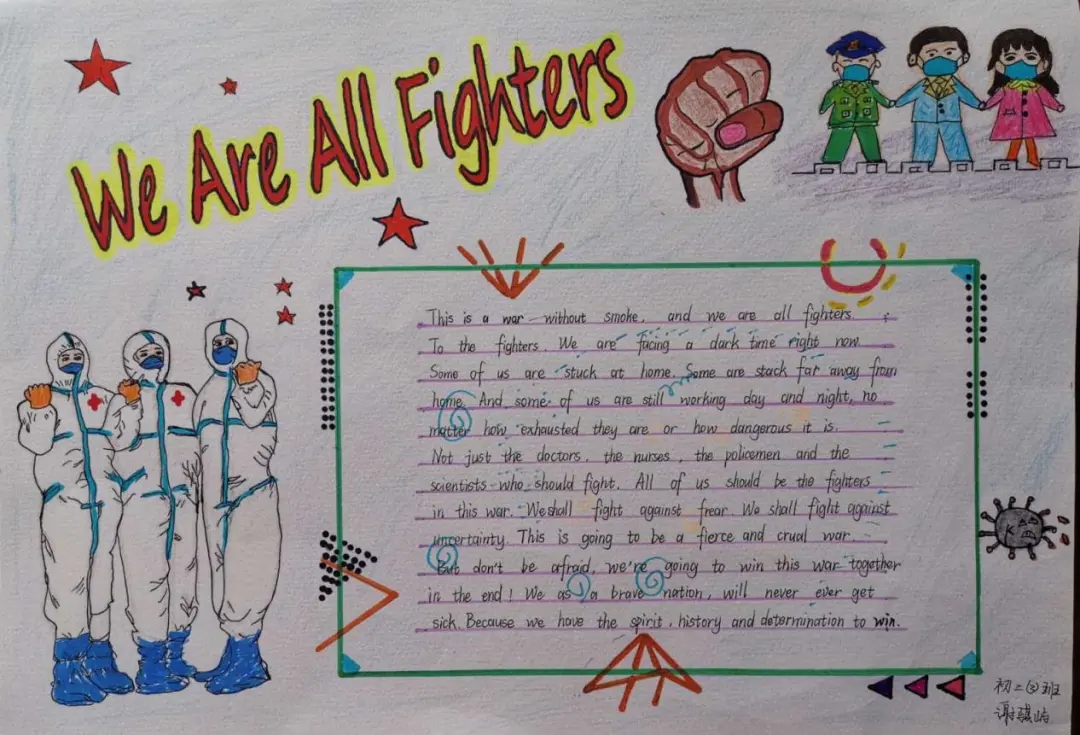 We Are All Fighters
This is a war without smoke, and we are all fighters.
To the fighters. We are facing a dark time right now.
Some of us are stuck at home. Some are stack far away from
home. And some of us are still working day and night, no
matter how exhausted they are or how dangerous it is.
Not just the doctors, the nurses, the policemen and the
scientists who should fight. All of us should be the fighters
in this war. We shall fight against frear. We shall fight against
uncertainty. This is going to be a fierce and crual war.
But don't be afraid, we're going to win this war together
in the end! We as a brave nation, will never ever get
sick. Because we have the spirit, history and determination to win.
初二(3)班
谢骐屿